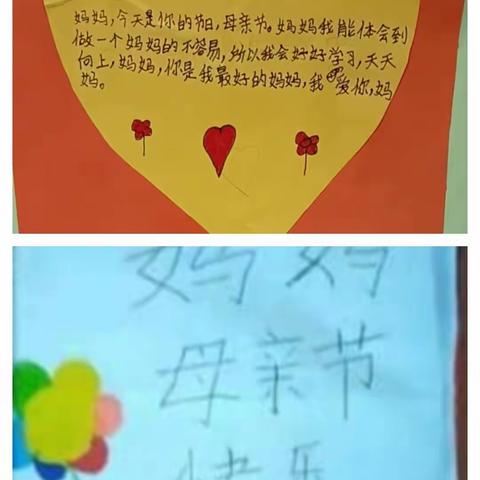 妈妈，今天是你的节日，母亲节。妈妈我能体会到
做一个妈妈的不容易，所以我会好好学习，天天
向上，妈妈，你是我最好的妈妈，我爱你，妈
妈。
妈妈
母亲节
快乐